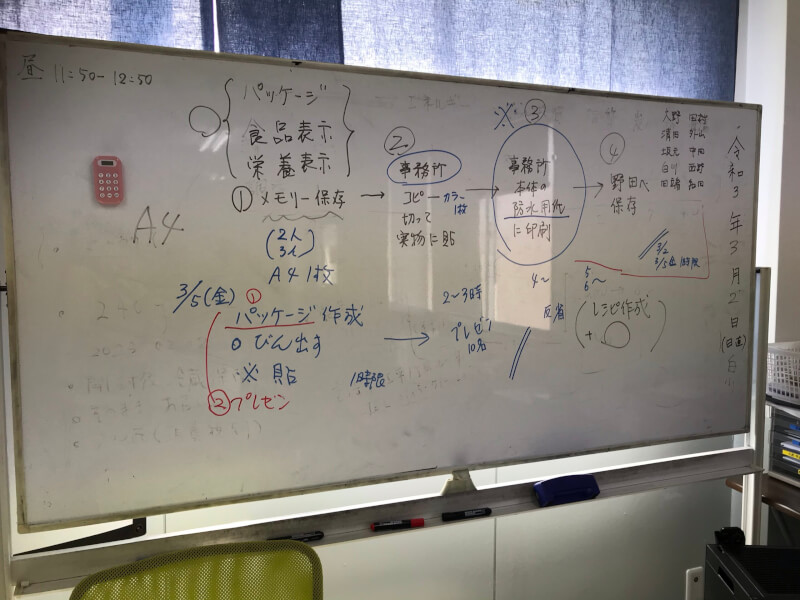 昼 11:50-12:50
パッケージ
食品表示
栄養表示
① メモリー保存
(2人
3人)
A4 1枚
A4
②
事務所
コピー カラー
1枚
切って
実物に貼
※ ③
事務所
本体の
防水用紙
に印刷
④
野田へ
保存
大野
濱田 外山
坂元 中田
白川 西野
令和3年3月2日
(日直)
3/2
3/5金 1時限
3/5(金) ①
パッケージ作成
○ びん出す
※ 貼
1時限
② プレゼン
2~3時
プレゼン
10名
4~
反省
5
6~
(レシピ作成
+ ○)